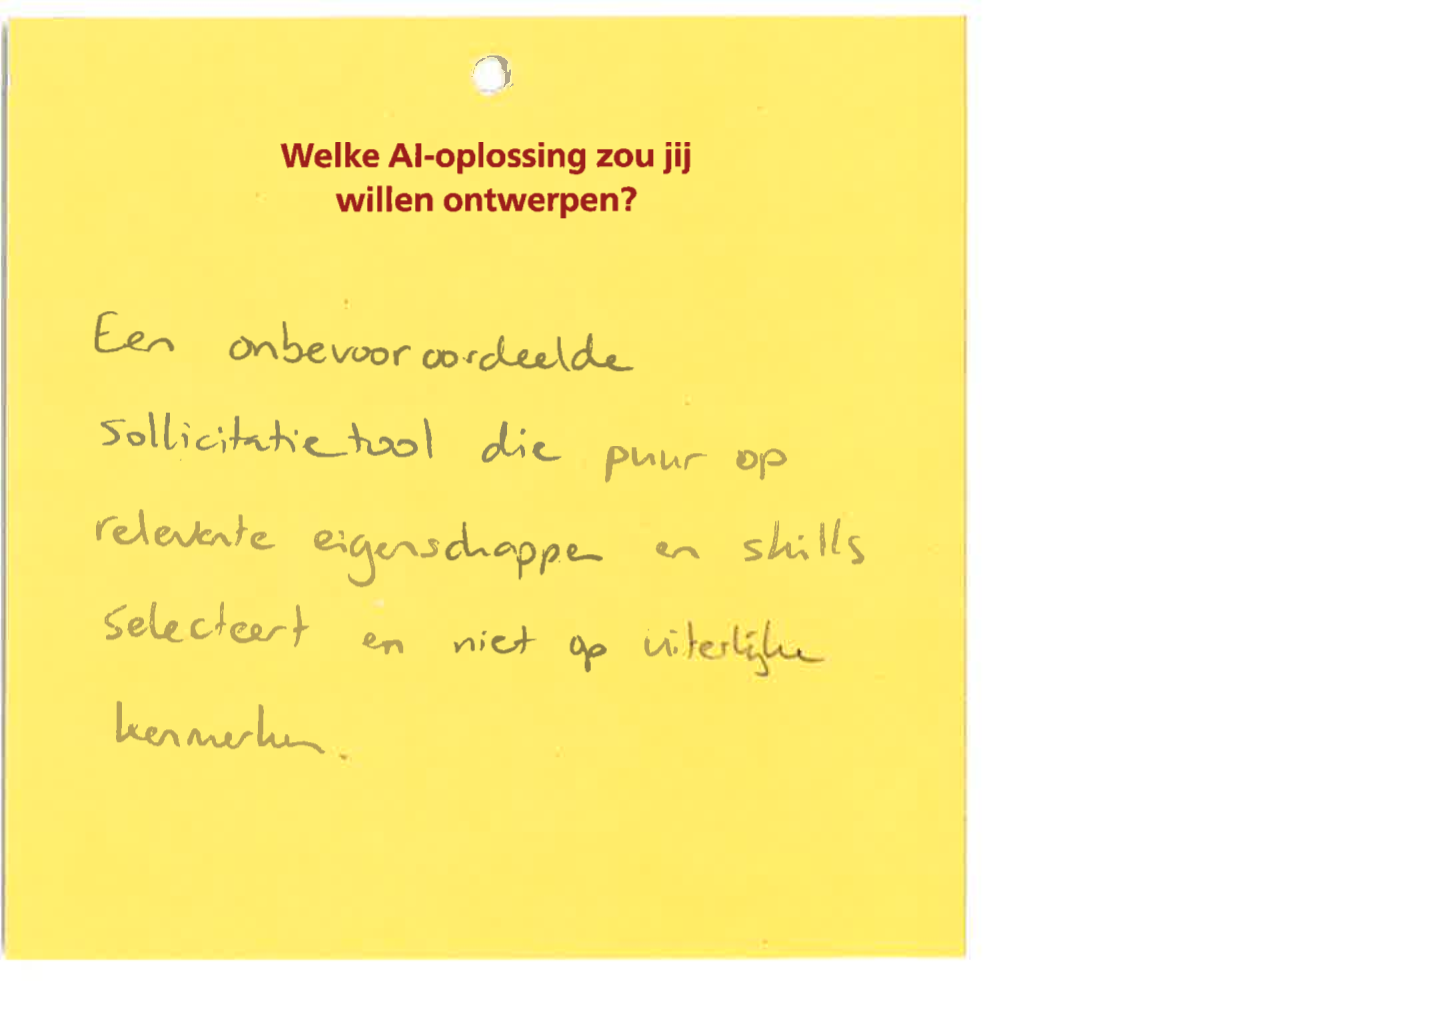 Welke AI-oplossing zou jij
willen ontwerpen?
Een onbevooroordeelde
sollicitatietool die puur op
relevante eigenschappen en skills
selecteert en niet op uiterlijke
kenmerken.